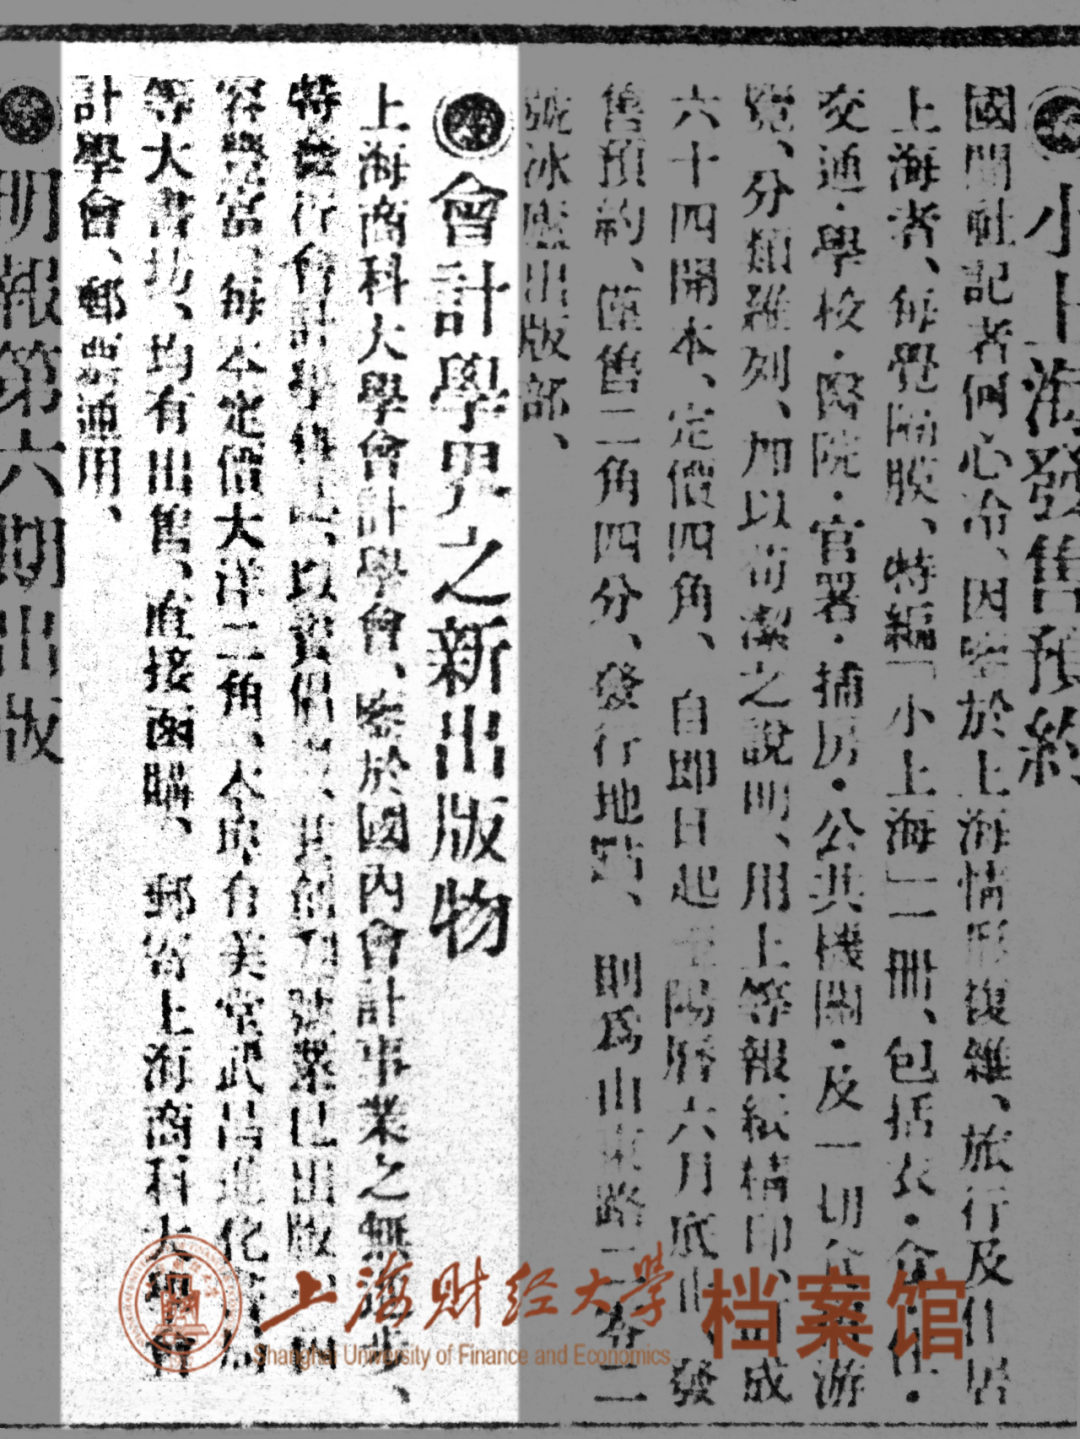 小上海發售預約
國聞社記者何心冷、因鑒於上海情形復雜、旅行及住居
上海者、每覺隔膜、特編「小上海」一冊、包括衣·食·住·
交通·學校·醫院·官署·捕房·公共機關·及一切遊
覽、分類雜列、加以簡潔之說明、用上等報紙精印、成
六十四開本、定價四角、自即日起至陽曆六月底止、發
售預約、僅售二角四分、發行地點、則為山東路二
號冰廬出版部、
會計學界之新出版物
上海商科大學會計學會、鑒於國內會計事業之無進步、
特發行會計學雜誌、以資倡、其創刊號業已出版、內
容豐富、每本定價大洋二角、今即有美堂武昌進化書局
等大書坊、均有出售、直接函購、郵寄上海商科大學會
計學會、郵票通用、
明報第六期出版
上海财经大学 档案馆
Shanghai University of Finance and Economics